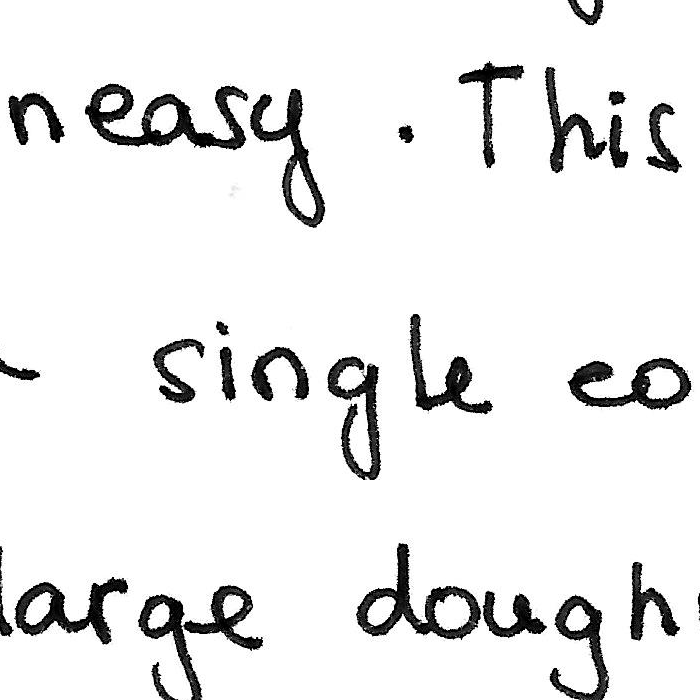 neasy. This
single co
large dough